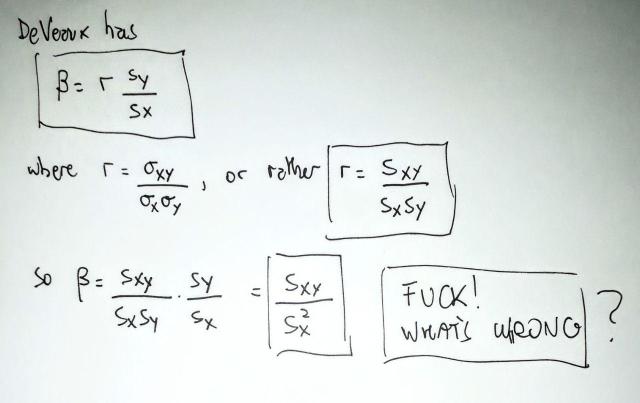 DeVeaux has
β = r sy/sx
where r = σxy/σxσy, or rather r = sxy/sxsy
so β = sxy/sxsy · sy/sx = sxy/sx²
FUCK!
WHAT'S WRONG?